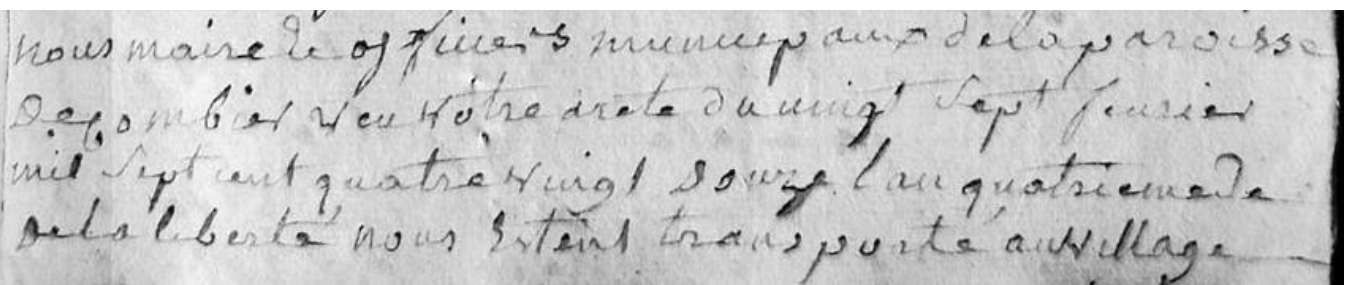 nous maire et officiers municipaux de la paroisse
de combier veu votre arete du vingt sept fevrier
mil sept cent quatre vingt douze l'an quatrieme de
de la liberté nous estent transporté au village